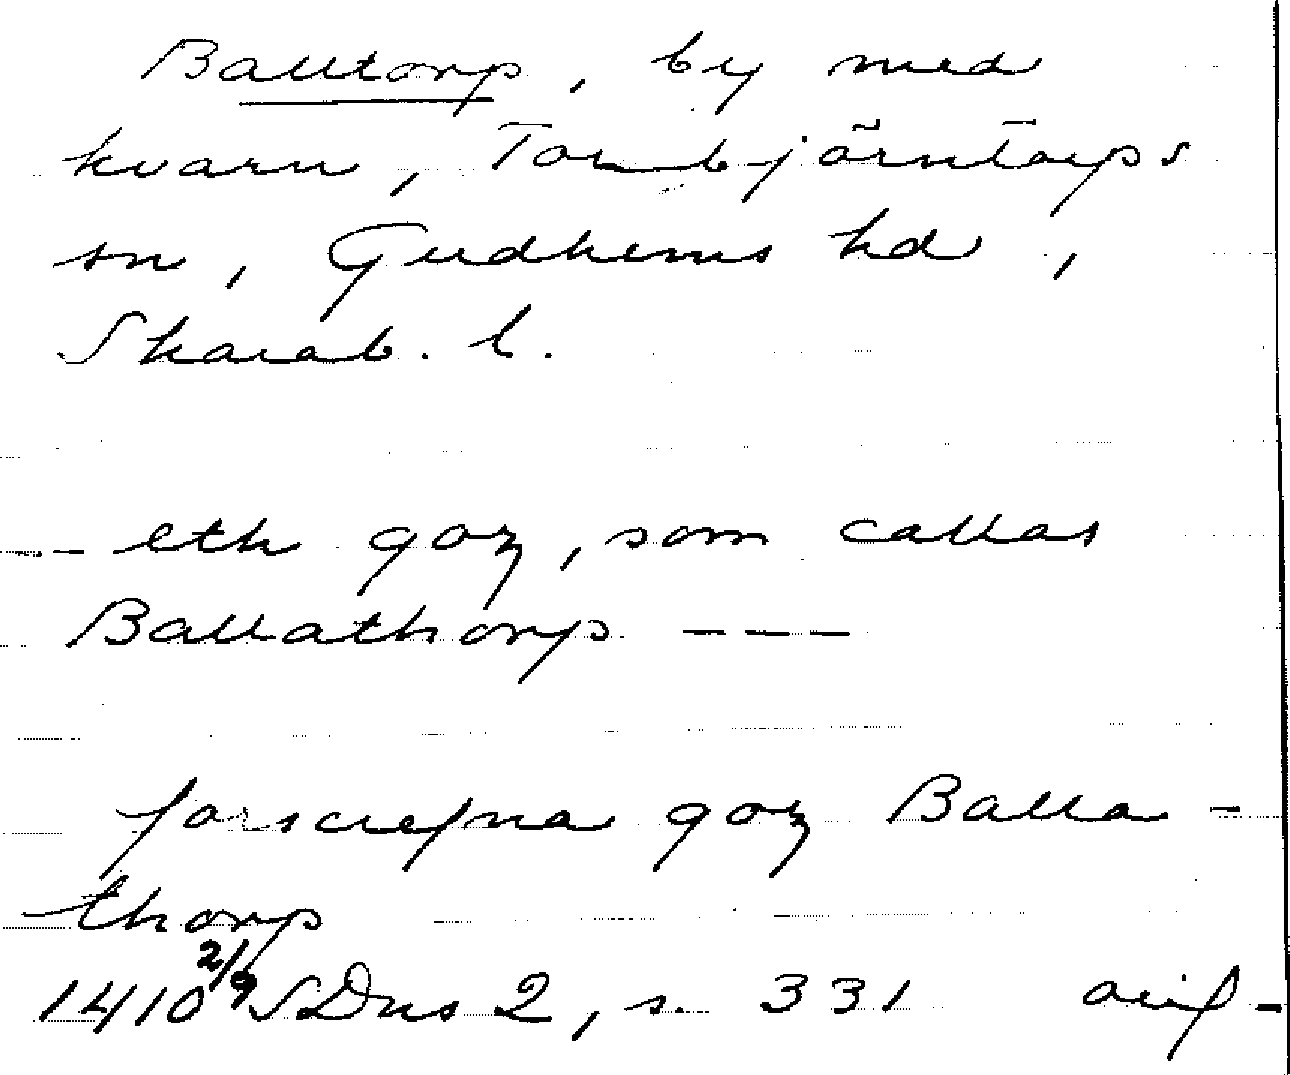 Balltorp, by med
kvarn, Torbjörntorps
sn, Gudhems hd,
Skarab. l.
- eth goz, som callas
Ballathorp ---
forscrefna goz Balla-
thorp
1410 2/9 SDns 2, s. 331 avf-